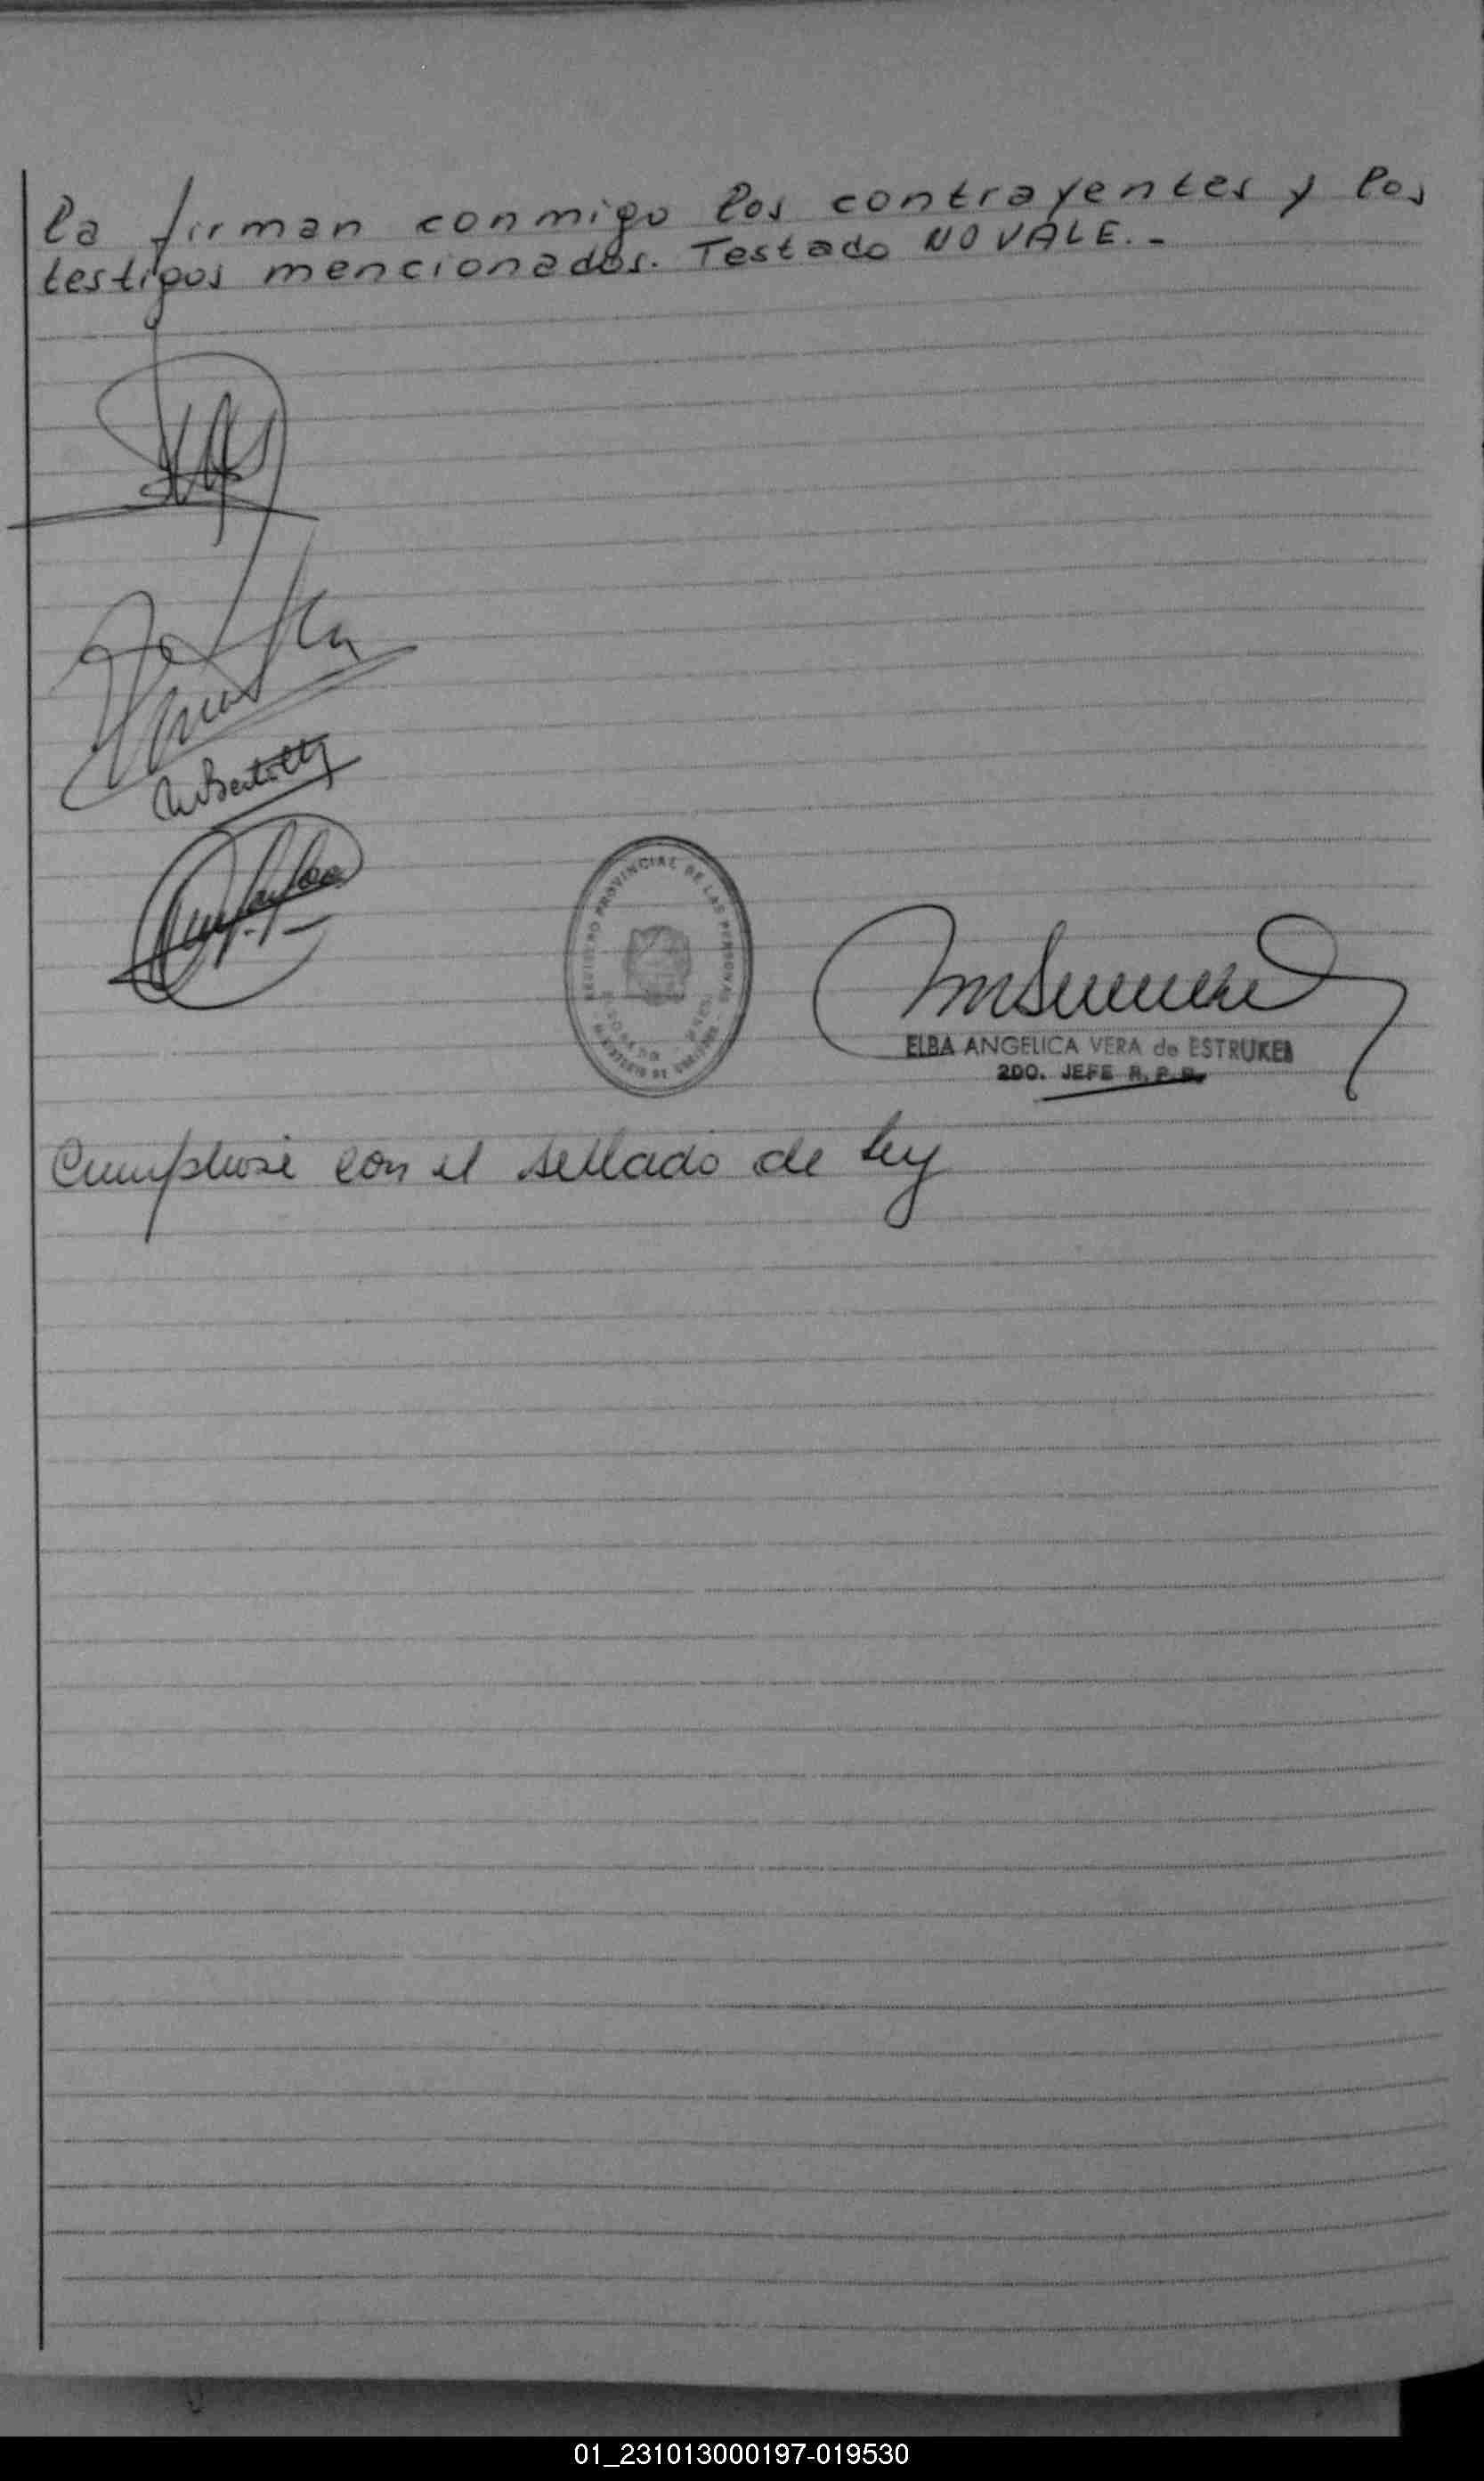 la firman conmigo los contrayentes y los
testigos mencionados. Testado NO VALE.-
REGISTRO PROVINCIAL DE LAS PERSONAS
MINISTERIO DE GOBIERNO
ELBA ANGELICA VERA de ESTRUKEL
2DO. JEFE R.P.P.
Cumpluse con el sellado de ley
01_231013000197-019530